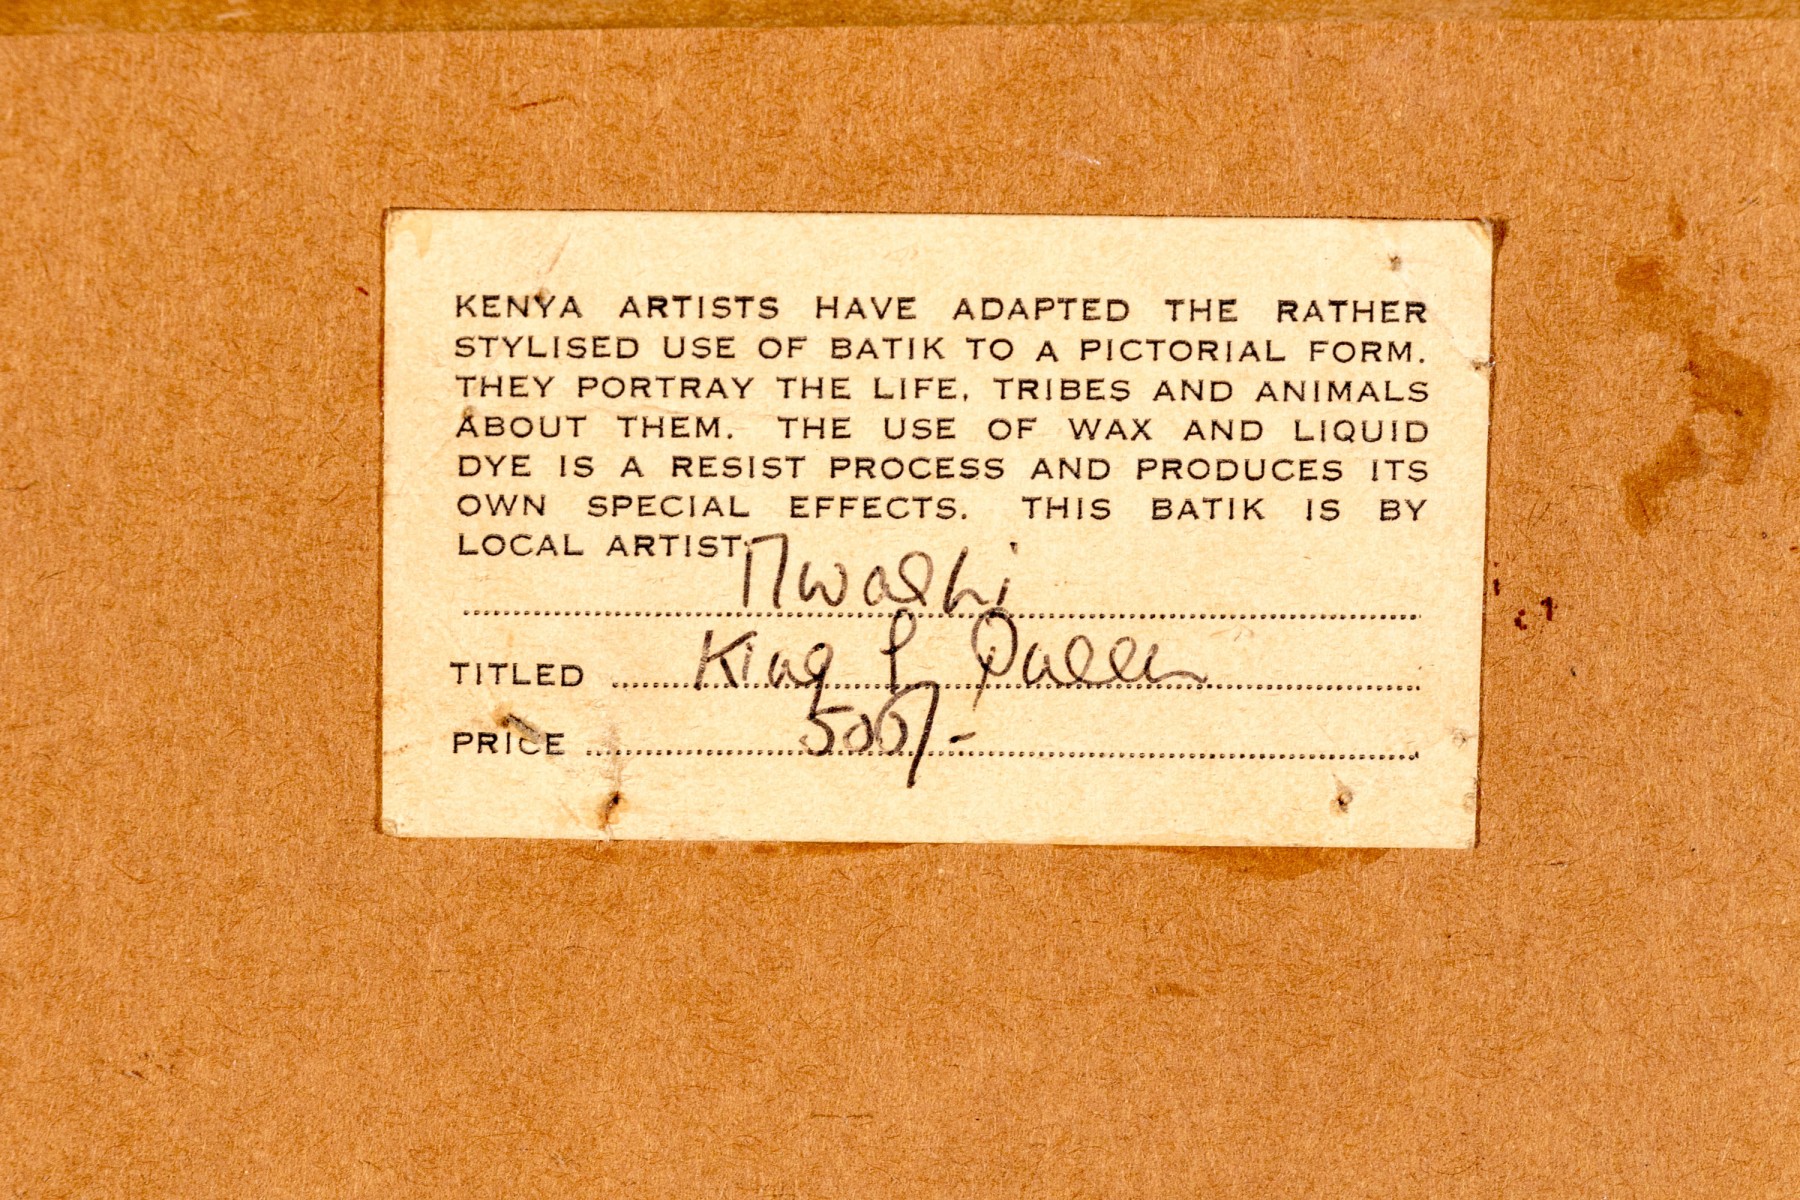 KENYA ARTISTS HAVE ADAPTED THE RATHER
STYLISED USE OF BATIK TO A PICTORIAL FORM.
THEY PORTRAY THE LIFE, TRIBES AND ANIMALS
ABOUT THEM. THE USE OF WAX AND LIQUID
DYE IS A RESIST PROCESS AND PRODUCES ITS
OWN SPECIAL EFFECTS. THIS BATIK IS BY
LOCAL ARTIST
TITLED King
PRICE 500/-